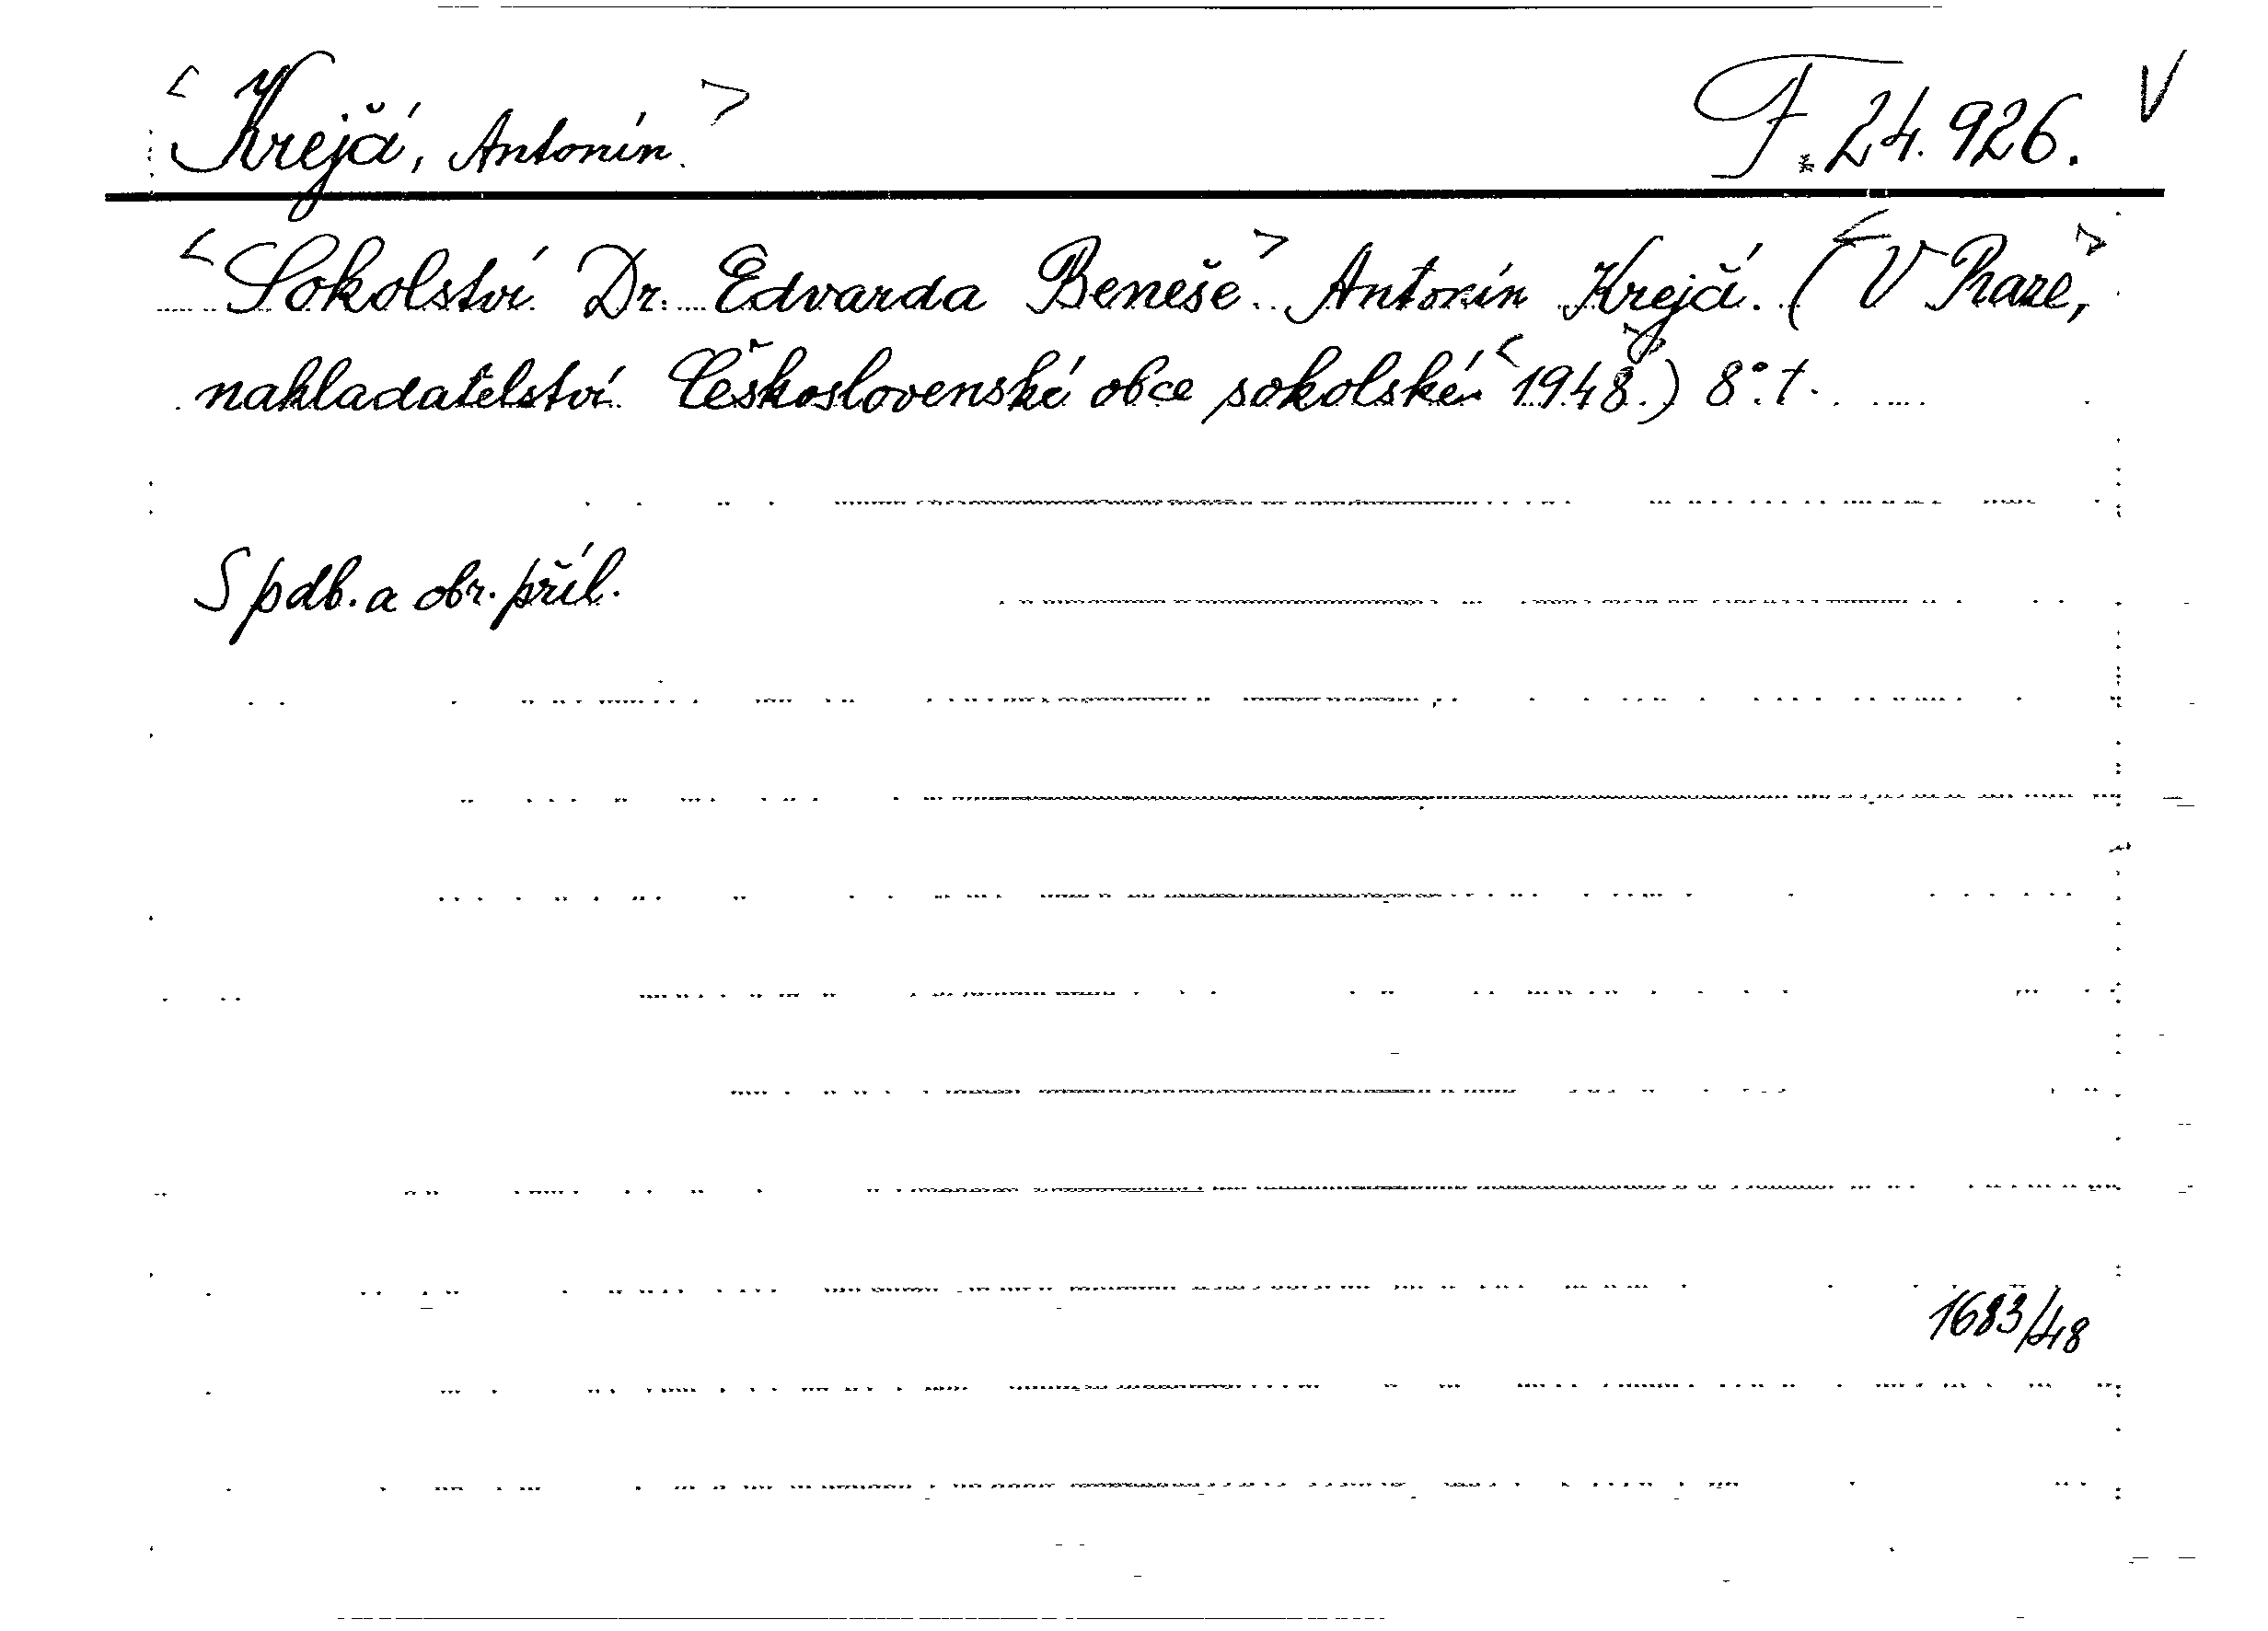 <Krejčí, Antonín.> F* 24.926. V
<Sokolství Dr. Edvarda Beneše.> Antonín Krejčí. (<V Praze,>
nakladatelství Československé obce sokolské <1948.>) 8° t.
S pdb. a obr. příl.
1683/48